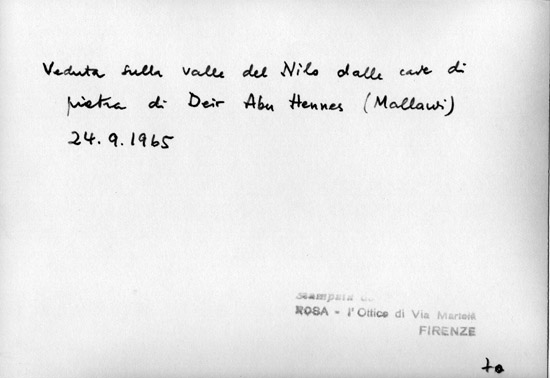 Veduta sulla valle del Nilo dalle cave di
pietra di Deir Abu Hennes (Mallawi)
24.9.1965
Stampata da
ROSA - l'Ottico di Via Martelli
FIRENZE